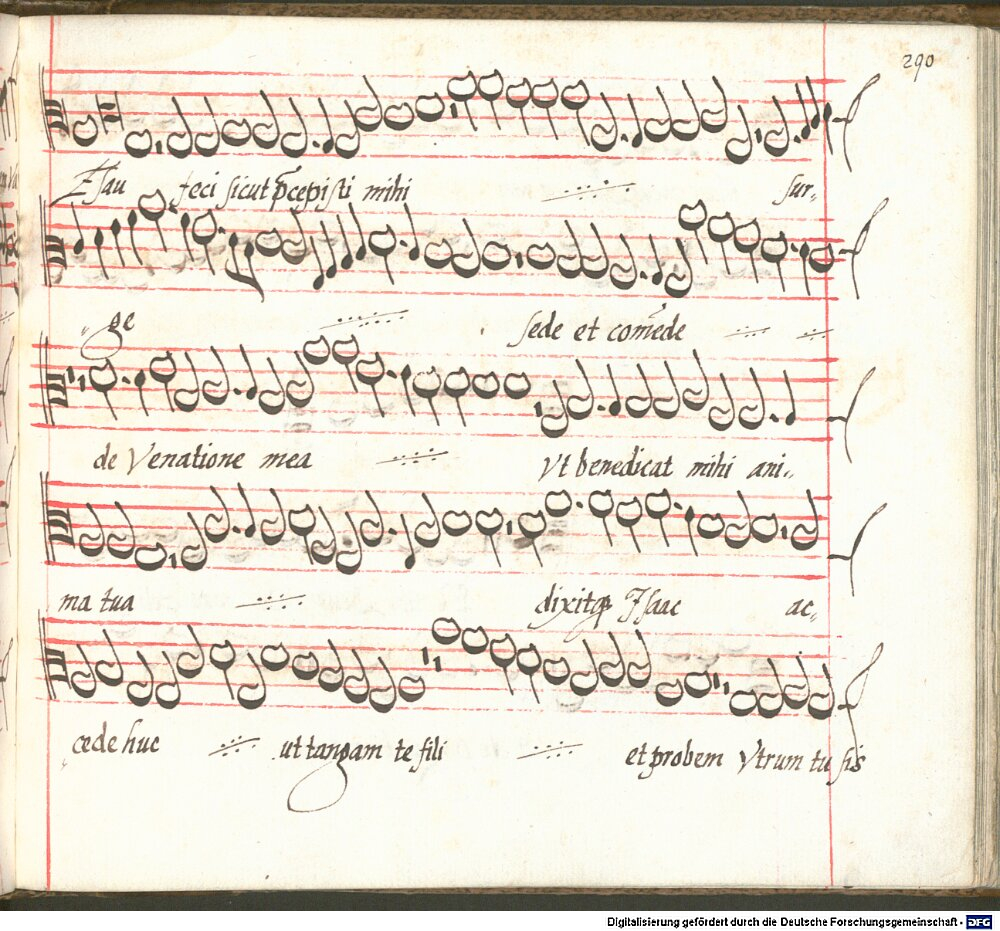 290
Esau feci sicut p̄cepisti mihi sur-
ge sede et com̄ede
de Venatione mea Vt benedicat mihi ani-
ma tua dixitqꝫ Isaac ac-
cede huc ut tangam te fili et probem Vtrum tu sis
Digitalisierung gefördert durch die Deutsche Forschungsgemeinschaft - DFG